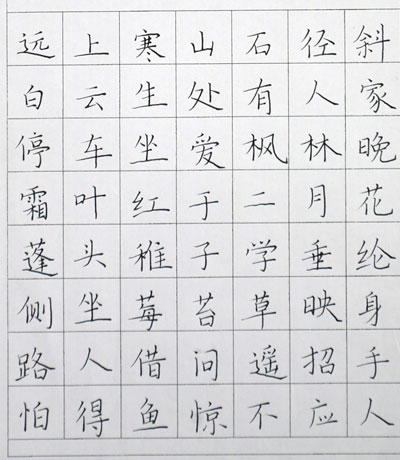 远上寒山石径斜
白云生处有人家
停车坐爱枫林晚
霜叶红于二月花
蓬头稚子学垂纶
侧坐莓苔草映身
路人借问遥招手
怕得鱼惊不应人